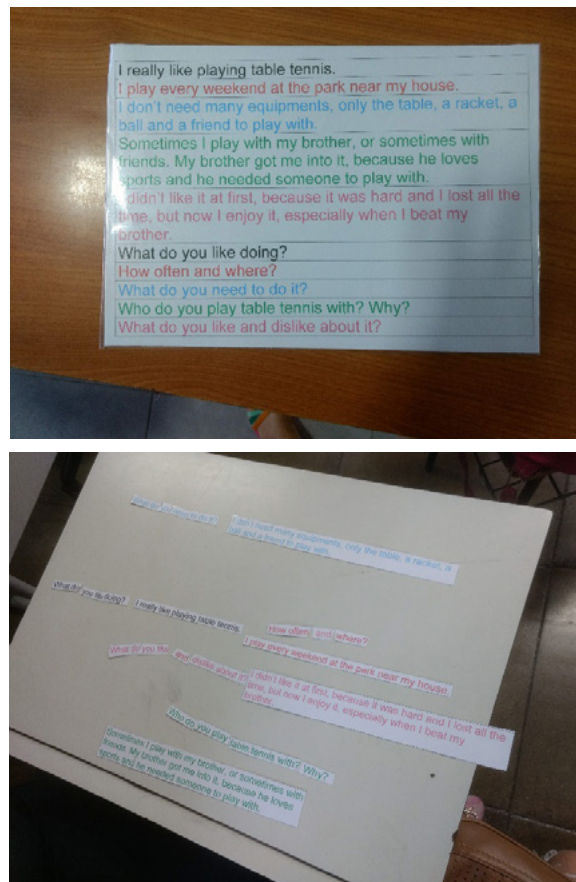 I really like playing table tennis.
I play every weekend at the park near my house.
I don't need many equipments, only the table, a racket, a
ball and a friend to play with.
Sometimes I play with my brother, or sometimes with
friends. My brother got me into it, because he loves
sports and he needed someone to play with.
I didn't like it at first, because it was hard and I lost all the
time, but now I enjoy it, especially when I beat my
brother.
What do you like doing?
How often and where?
What do you need to do it?
Who do you play table tennis with? Why?
What do you like and dislike about it?
What do you need to do it?
I don't need many equipments, only the table, a racket, a
ball and a friend to play with.
What do you like doing?
I really like playing table tennis.
How often and where?
I play every weekend at the park near my house.
What do you like and dislike about it?
I didn't like it at first, because it was hard and I lost all the
time, but now I enjoy it, especially when I beat my
brother.
Who do you play table tennis with? Why?
Sometimes I play with my brother, or sometimes with
friends. My brother got me into it, because he loves
sports and he needed someone to play with.